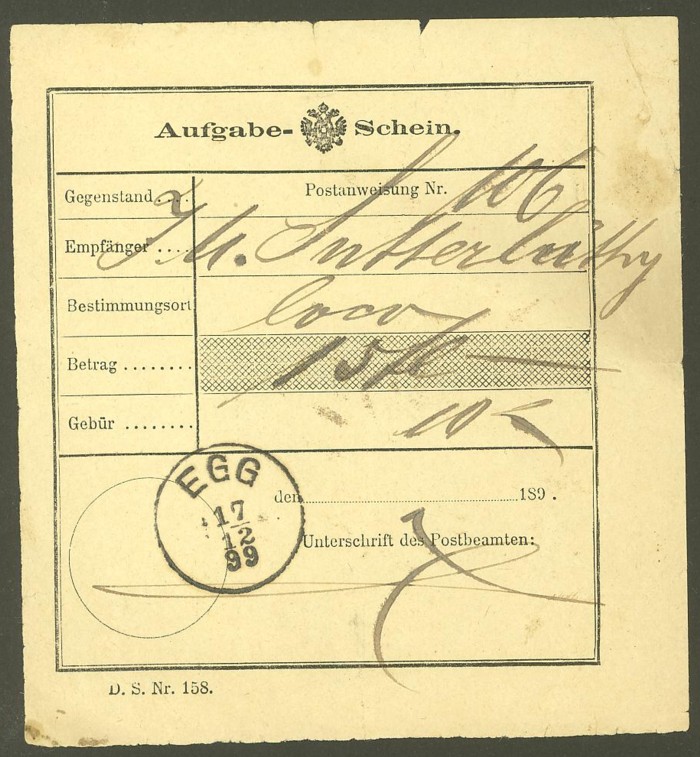 Aufgabe- Schein.
Gegenstand.... Postanweisung Nr. 106
Empfänger ....
Bestimmungsort loco
Betrag ........ 15 fl —
Gebür ........ 10
EGG
17
12
99
den.............................................189 .
Unterschrift des Postbeamten:
D. S. Nr. 158.